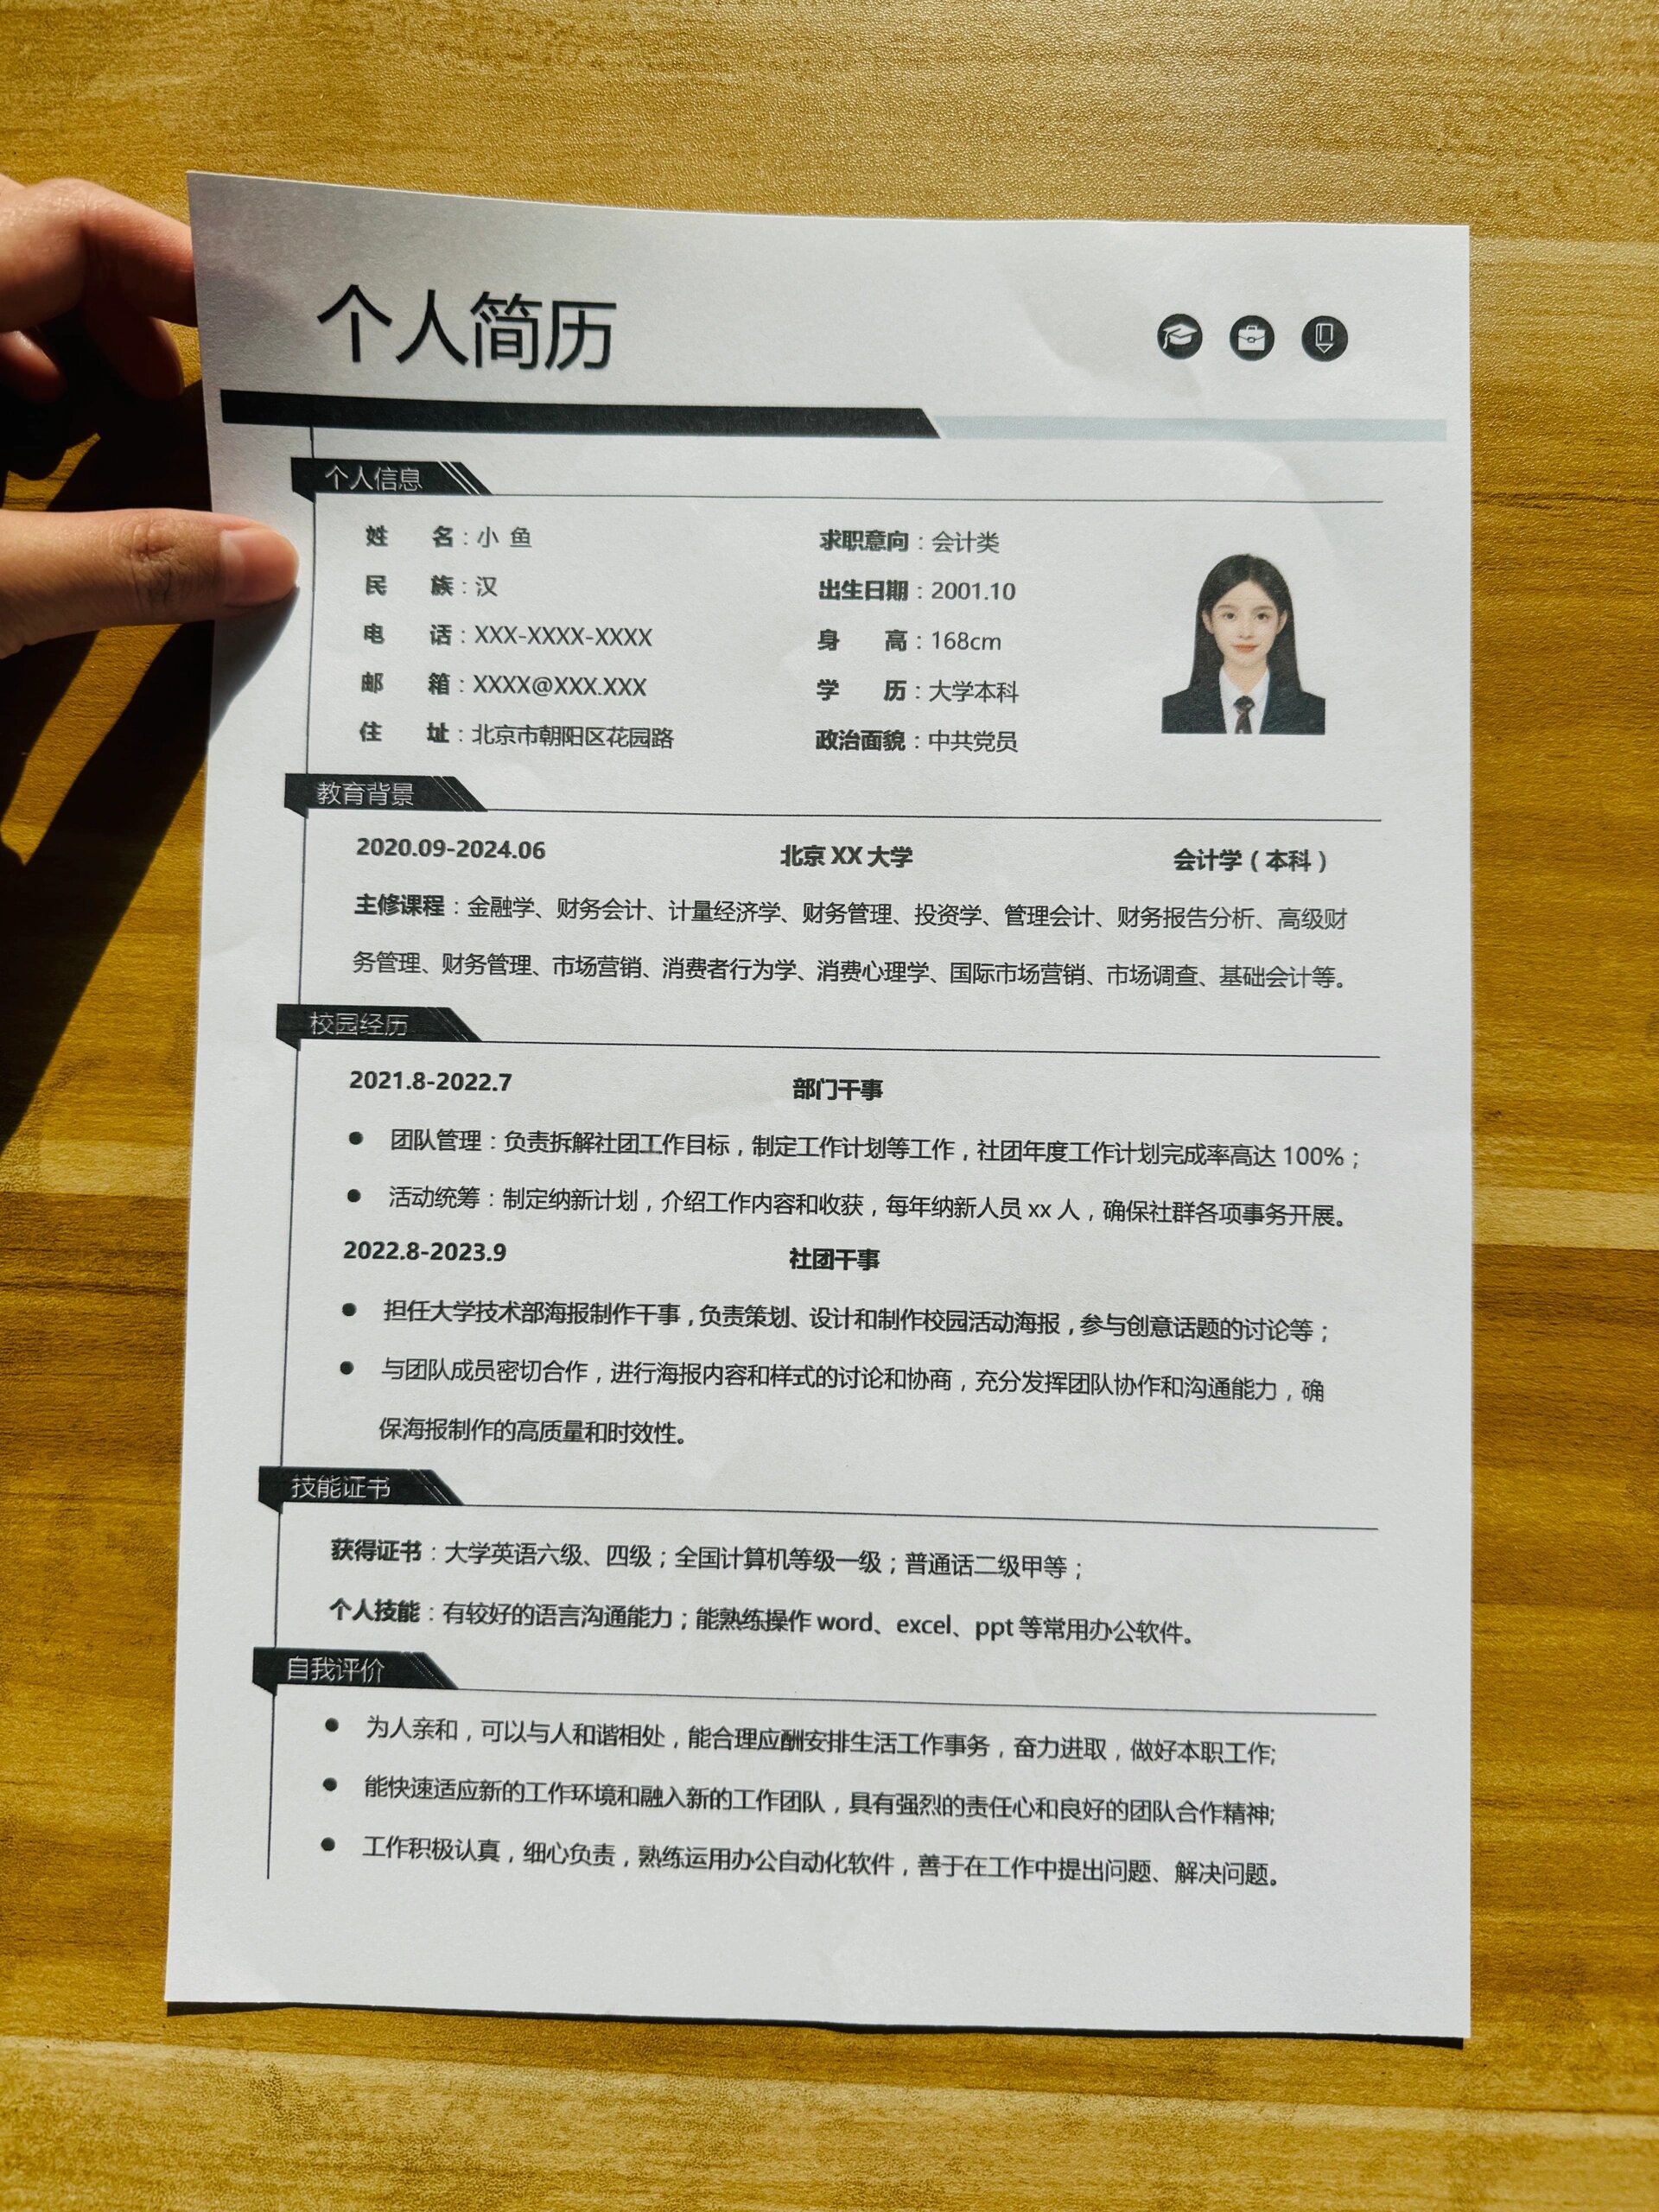 个人简历
个人信息
姓 名：小 鱼 求职意向：会计类
民 族：汉 出生日期：2001.10
电 话：XXX-XXXX-XXXX 身 高：168cm
邮 箱：XXXX@XXX.XXX 学 历：大学本科
住 址：北京市朝阳区花园路 政治面貌：中共党员
教育背景
2020.09-2024.06 北京 XX 大学 会计学（本科）
主修课程：金融学、财务会计、计量经济学、财务管理、投资学、管理会计、财务报告分析、高级财
务管理、财务管理、市场营销、消费者行为学、消费心理学、国际市场营销、市场调查、基础会计等。
校园经历
2021.8-2022.7 部门干事
● 团队管理：负责拆解社团工作目标，制定工作计划等工作，社团年度工作计划完成率高达 100%；
● 活动统筹：制定纳新计划，介绍工作内容和收获，每年纳新人员 xx 人，确保社群各项事务开展。
2022.8-2023.9 社团干事
● 担任大学技术部海报制作干事，负责策划、设计和制作校园活动海报，参与创意话题的讨论等；
● 与团队成员密切合作，进行海报内容和样式的讨论和协商，充分发挥团队协作和沟通能力，确
保海报制作的高质量和时效性。
技能证书
获得证书：大学英语六级、四级；全国计算机等级一级；普通话二级甲等；
个人技能：有较好的语言沟通能力；能熟练操作 word、excel、ppt 等常用办公软件。
自我评价
● 为人亲和，可以与人和谐相处，能合理应酬安排生活工作事务，奋力进取，做好本职工作;
● 能快速适应新的工作环境和融入新的工作团队，具有强烈的责任心和良好的团队合作精神;
● 工作积极认真，细心负责，熟练运用办公自动化软件，善于在工作中提出问题、解决问题。